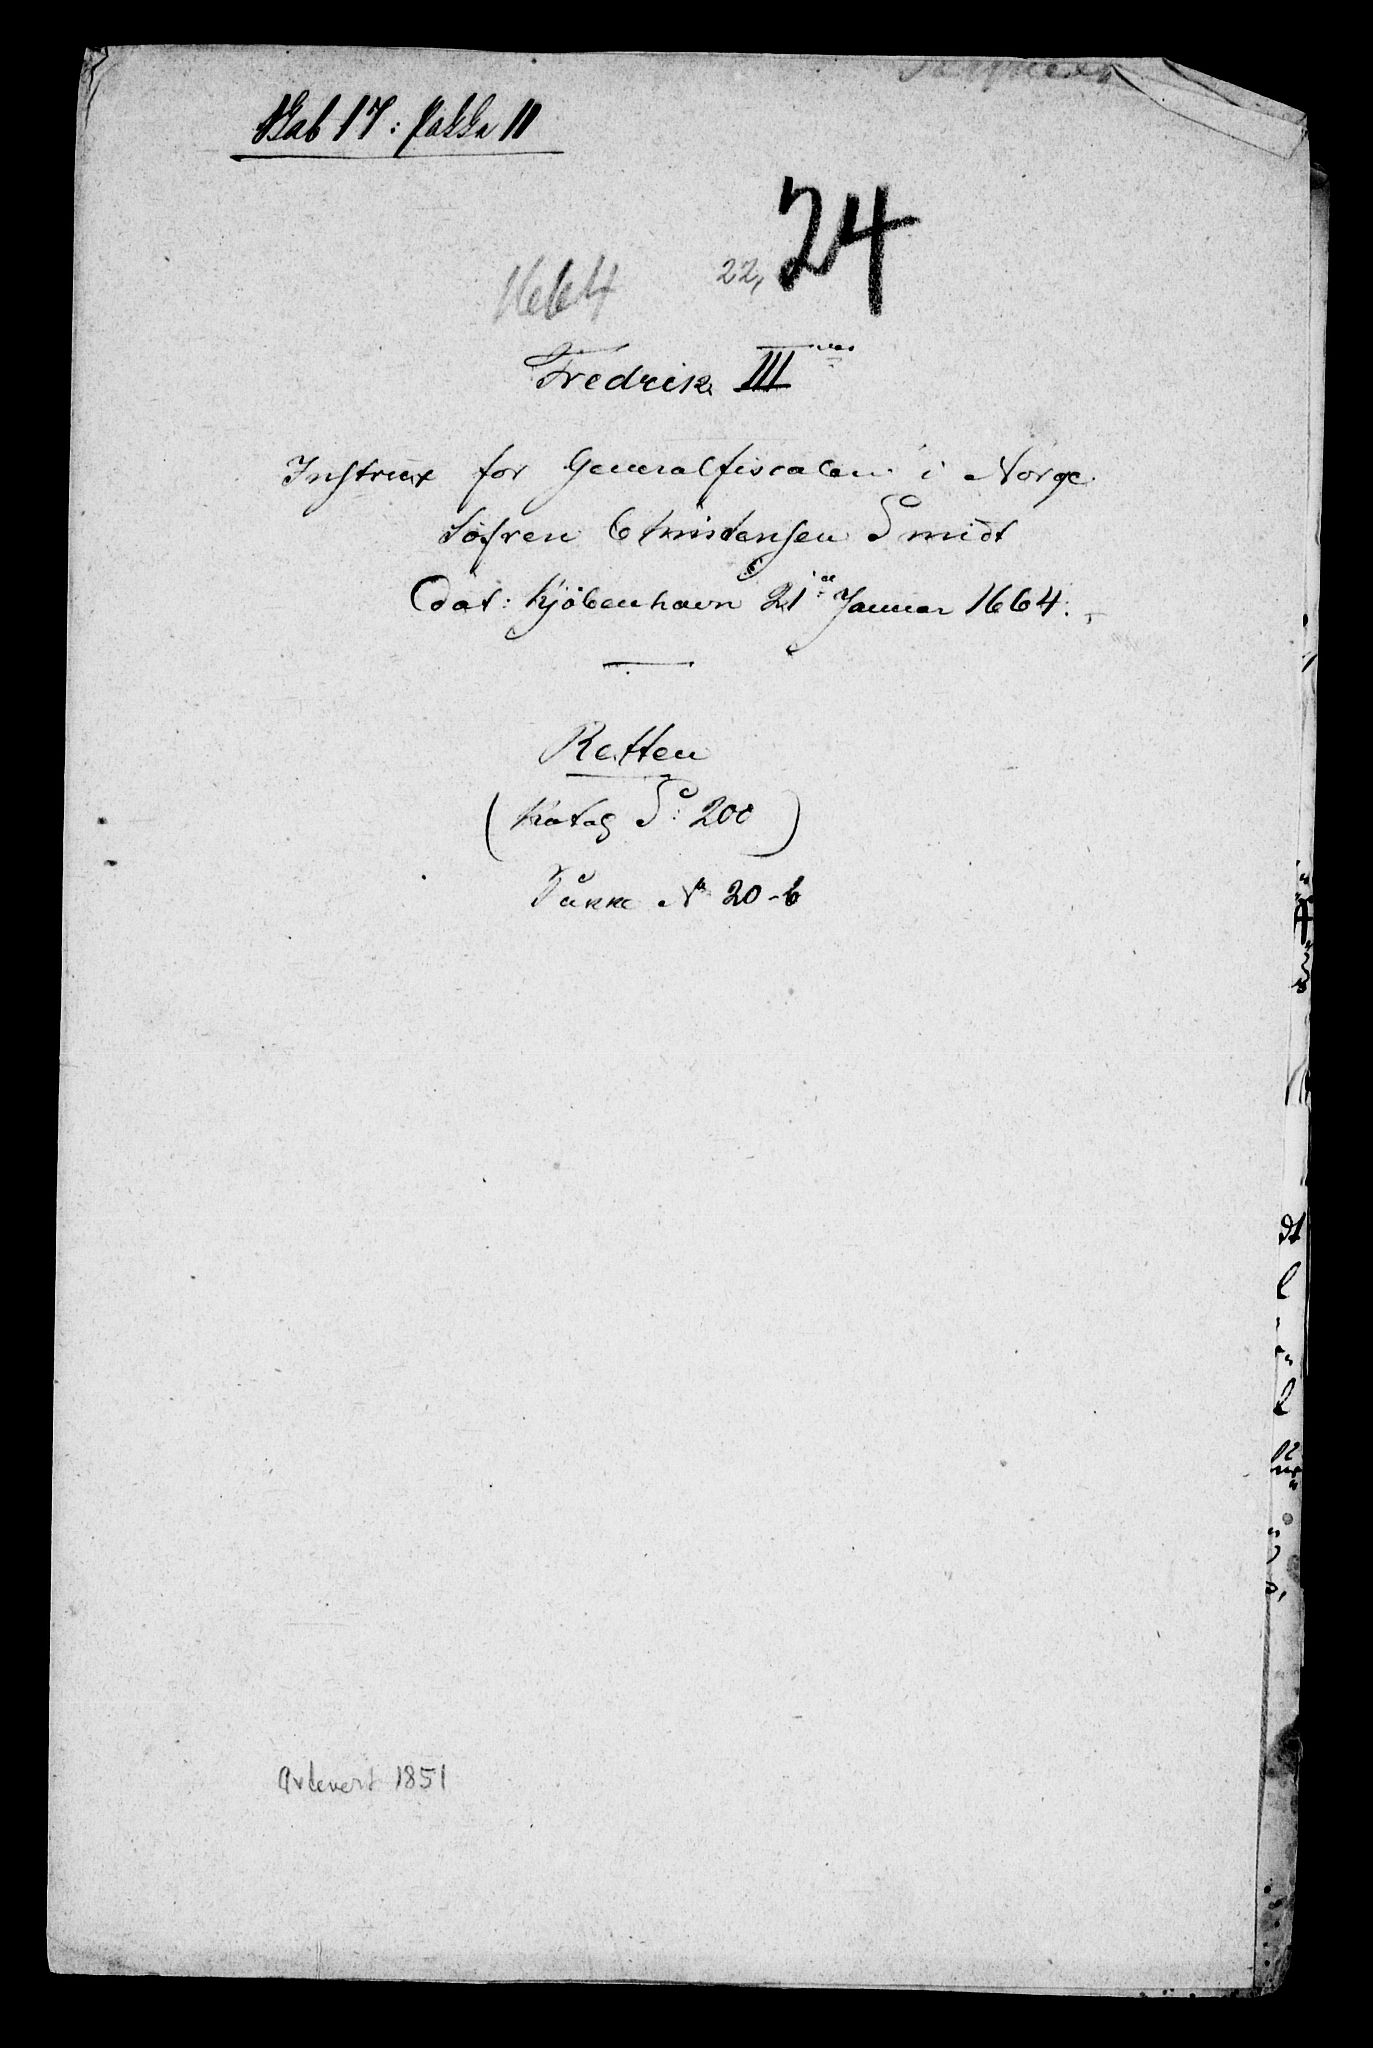 Skab 17: Pakke 11
24
1664 22,
Fredrik III
Instrux for Generalfiscalen i Norge
Söfren Christensen Smidt
Dat: Kjöbenhavn 21 Januar 1664.
Retten
(Katal S: 200)
Pakke No 20-b
Avlevert 1851